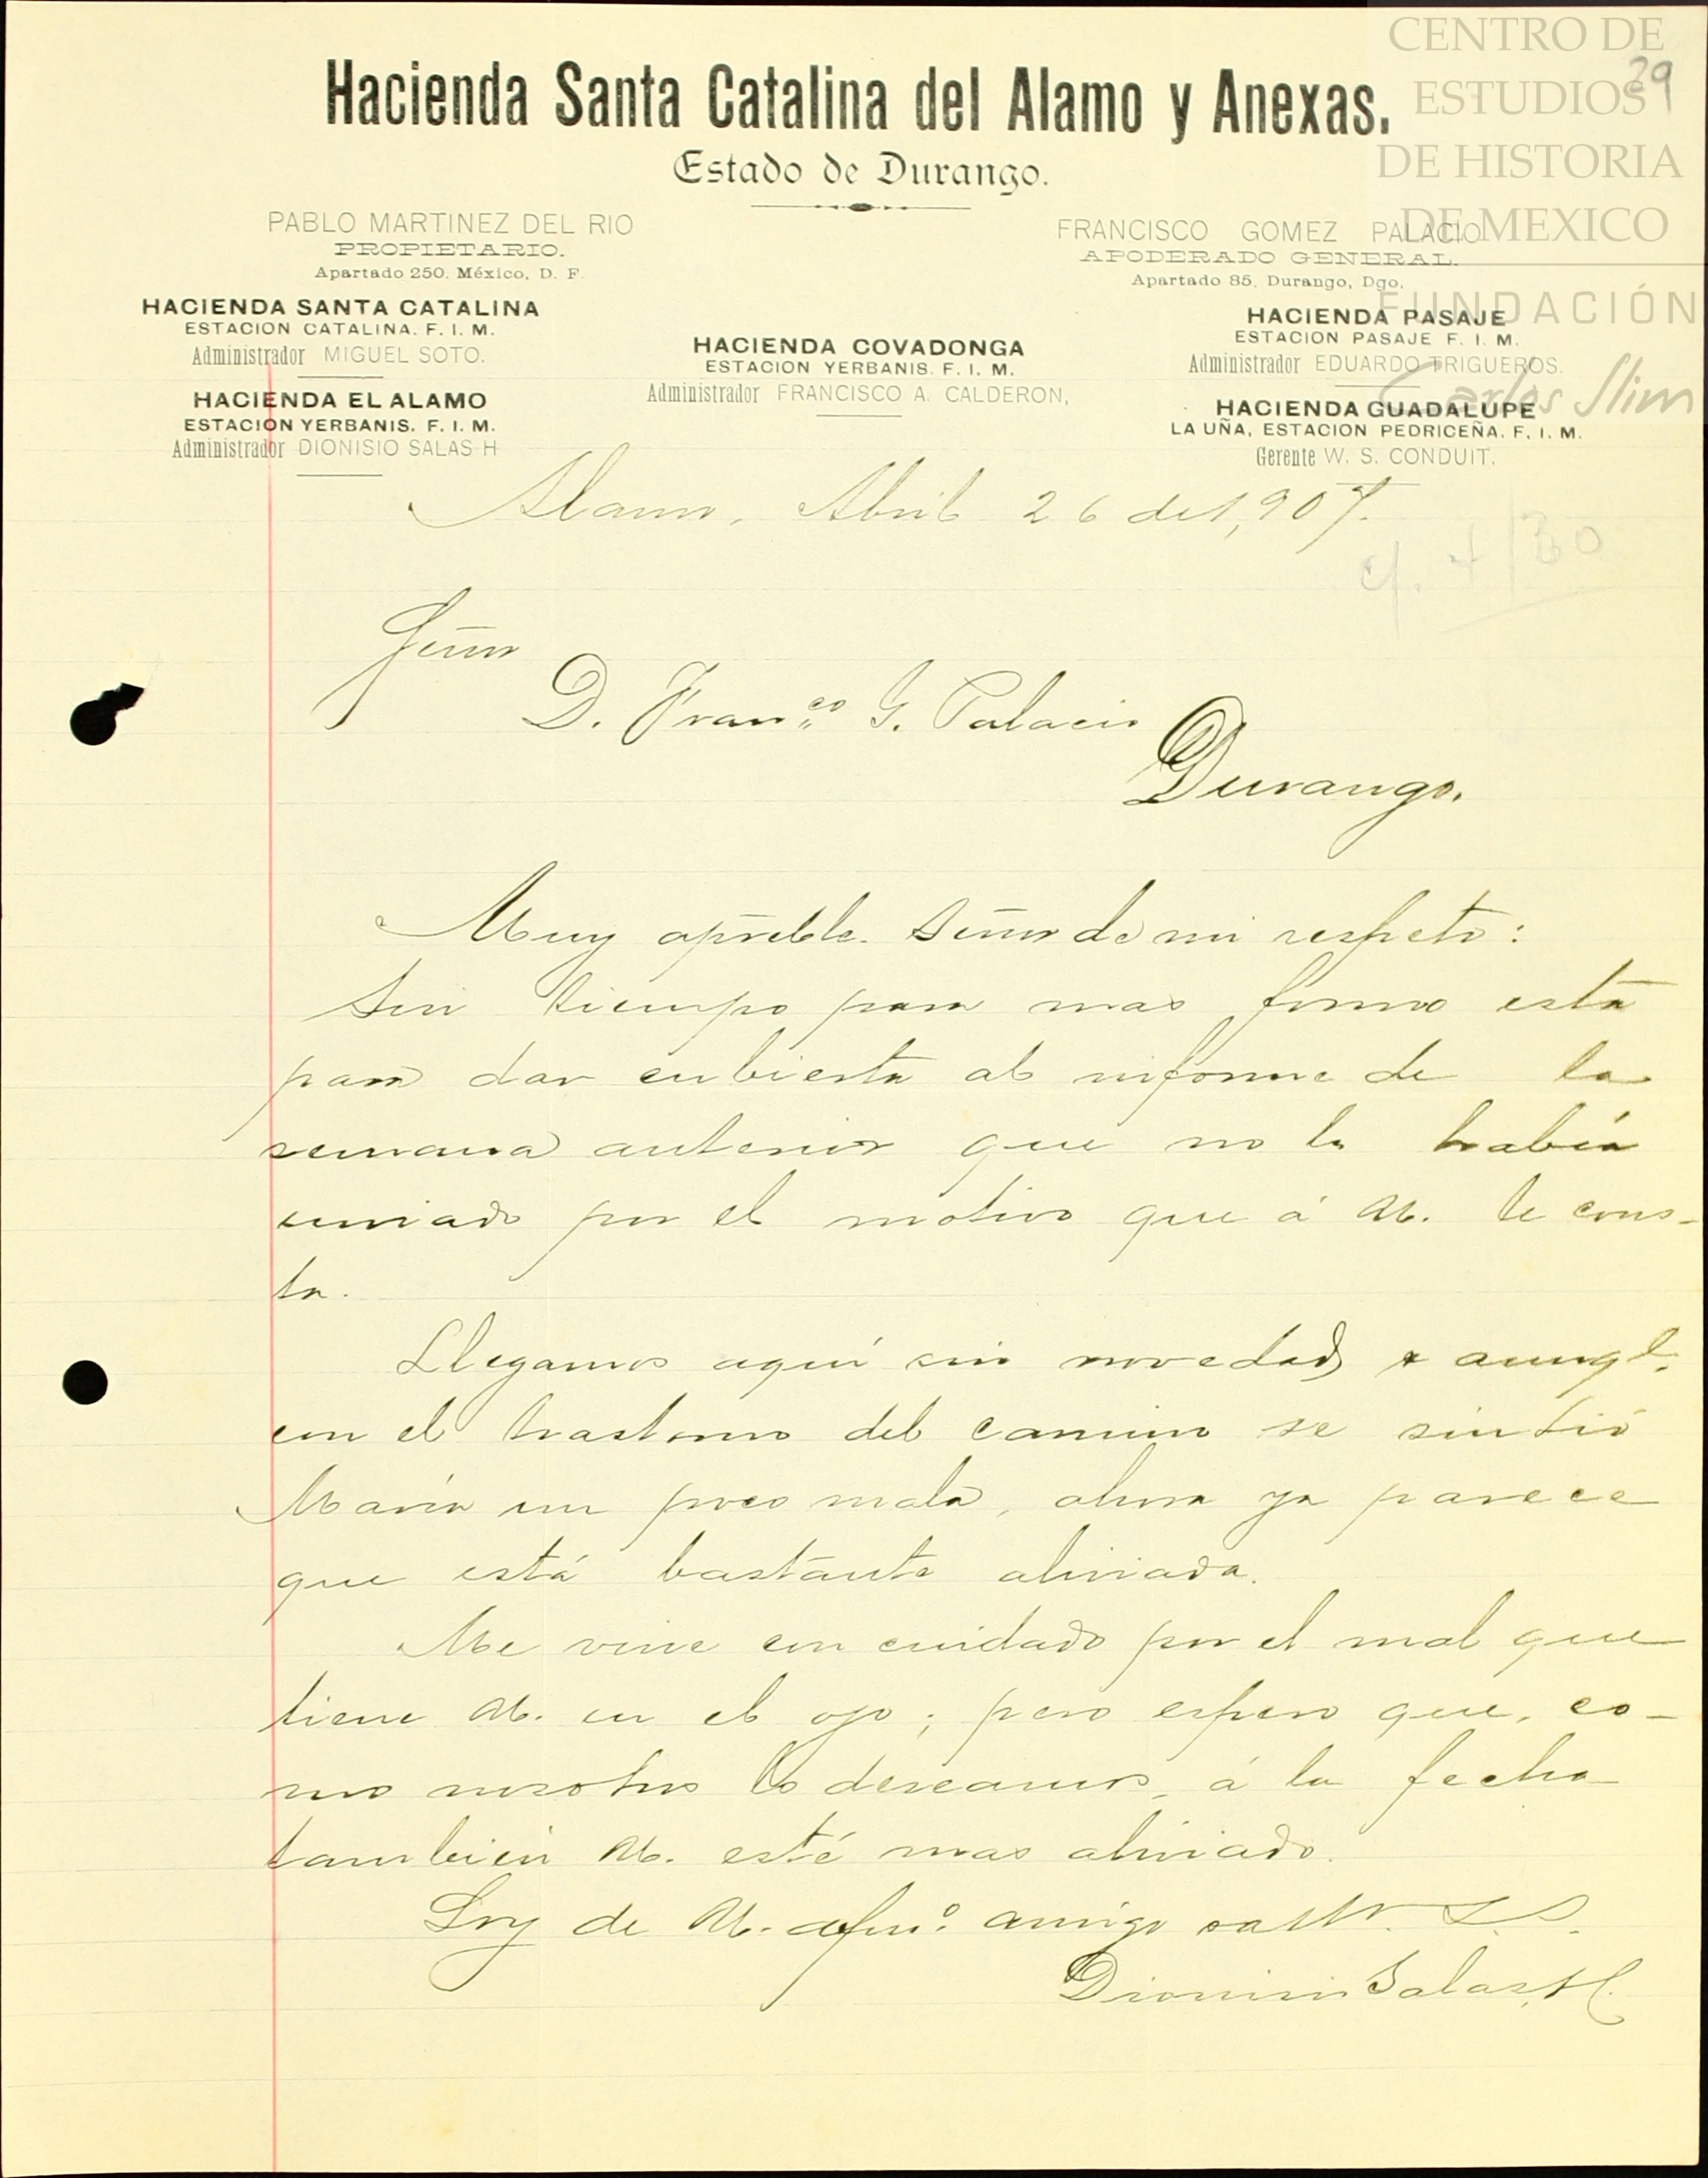 CENTRO DE
ESTUDIOS
DE HISTORIA
DE MEXICO
FUNDACIÓN
Carlos Slim
29
Hacienda Santa Catalina del Alamo y Anexas.
Estado de Durango.
PABLO MARTINEZ DEL RIO
PROPIETARIO.
Apartado 250. México, D. F.
FRANCISCO GOMEZ PALACIO
APODERADO GENERAL.
Apartado 85, Durango, Dgo.
HACIENDA SANTA CATALINA
ESTACION CATALINA. F. I. M.
Administrador MIGUEL SOTO.
HACIENDA EL ALAMO
ESTACION YERBANIS. F. I. M.
Administrador DIONISIO SALAS H
HACIENDA COVADONGA
ESTACION YERBANIS. F. I. M.
Administrador FRANCISCO A. CALDERON,
HACIENDA PASAJE
ESTACION PASAJE F. I. M.
Administrador EDUARDO TRIGUEROS.
HACIENDA GUADALUPE
LA UÑA, ESTACION PEDRICEÑA. F. I. M.
Gerente W. S. CONDUIT.
Alamo, Abril 26 de 1,907.
c/. 4/30
Señor
D. Franco G. Palacio
Durango.
Muy apreble. Señor de mi respeto:
Sin tiempo para mas firmo esta
para dar cubierta al informe de la
semana anterior que no la había
enviado por el motivo que á U. le cons-
ta.
Llegamos aquí sin novedad y aunqe.
con el trastorno del camino se sintió
María un poco mala, ahora ya parece
que está bastante aliviada.
Me vine con cuidado por el mal que
tiene U. en el ojo; pero espero que, co-
mo nosotros lo deseamos, á la fecha
también U. esté mas aliviado.
Soy de U. afmo. amigo S. S.
Dionisio Salas H.